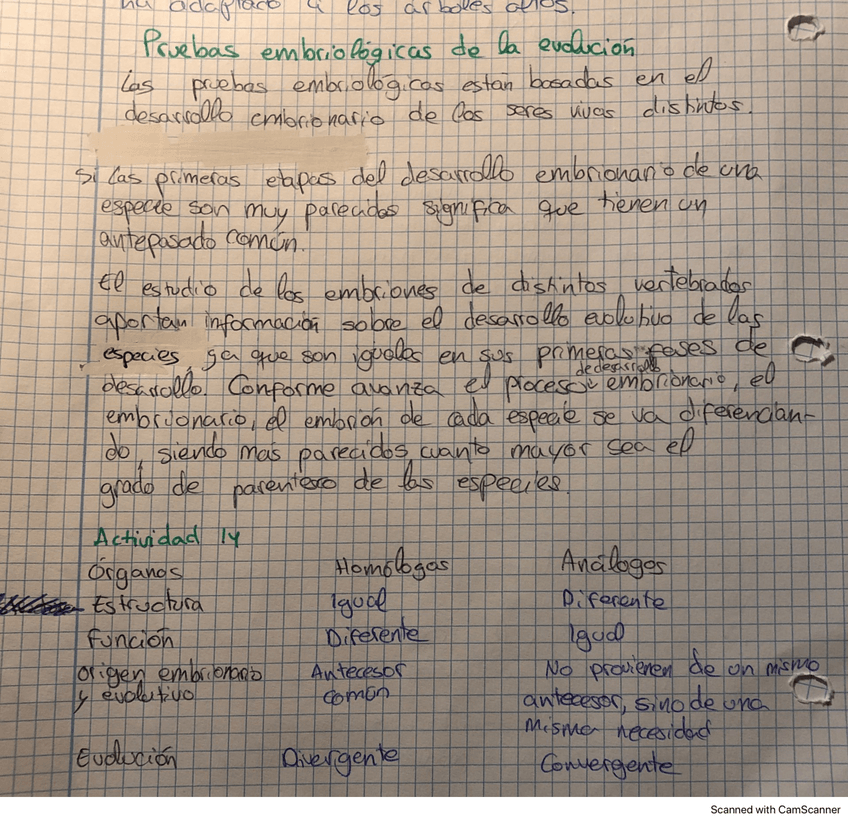 ha adaptado a los árboles altos.
Pruebas embriológicas de la evolución
Las pruebas embriológicas están basadas en el
desarrollo embrionario de los seres vivos distintos.
Si las primeras etapas del desarrollo embrionario de una
especie son muy parecidas significa que tienen un
antepasado común.
El estudio de los embriones de distintos vertebrados
aportan información sobre el desarrollo evolutivo de las
especies, ya que son iguales en sus primeras fases de
desarrollo. Conforme avanza el proceso de desarrollo embrionario, el
embrionario, el embrión de cada especie se va diferencian-
do, siendo más parecidos cuanto mayor sea el
grado de parentesco de las especies.
Actividad 14
Órganos Homólogos Análogos
Estructura Igual Diferente
Función Diferente Igual
Origen embrionario Antecesor No provienen de un mismo
y evolutivo común antecesor, sino de una
misma necesidad
Evolución Divergente Convergente
Scanned with CamScanner